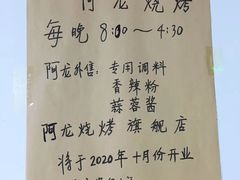 阿龙烧烤
每晚 8:00～4:30
阿龙外售：专用调料
香辣粉
蒜蓉酱
阿龙烧烤旗舰店
将于2020年十月份开业